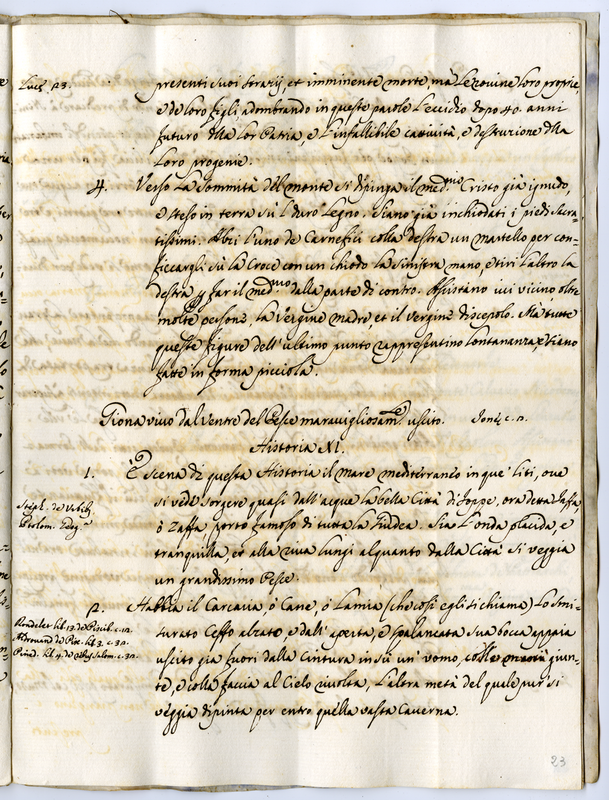 Luc. 23.
presenti suoi strazij, et imminente morte ma le rovine loro proprie,
e de loro figli adombrando in queste parole l'eccidio dopo 40. anni
futuro della lor Patria, e l'infallibile cattività, e destruzione della
loro progenie.
4. Verso la sommità del monte si dipinga il med.mo Cristo già ignudo,
e steso in terra sù l duro legno. Siano già inchiodati i piedi sacra-
tissimi. Abbi l'uno de Carnefici colla destra un martello per con-
ficcargli sù la Croce con un chiodo la sinistra mano, e tiri l'altro la
destra p far il med.mo dalla parte di contro. Assistano ivi vicino, oltre
molte persone, la Vergine madre, et il vergine discepolo. Mà tutte
queste figure dell'ultimo punto rappresentino lontananza, e siano
fatte in forma picciola.
Giona vivo dal Ventre del Pesce maravigliosam.e uscito. Jonæ c. 2.
Historia XI.
1. È scena di questa Historia il mare mediterraneo in que' liti, ove
si vede sorgere quasi dall'acque la bella Città di Joppe, ora detta Jaffa,
ò Zaffa, porto famoso di tutta la Giudea. Sia l'onda placida, e
tranquilla, et alla riva lungi alquanto dalla Città si veggia
un grandissimo Pesce.
Steph. de Urbib.
2. Habbia il Carcaria, ò Cane, ò Lamia (che così egli si chiama) lo smi-
surato ceffo alzato, e dall'aperta, e spalancata sua bocca appaia
uscito già fuori dalla cintura in sù un'vomo, colle mani giun-
te, e colla faccia al Cielo rivolta, l'altra metà del quale pur si
veggia dipinta per entro quella vasta Caverna.
Rondelet lib. 13. de Piscib. c. 12.
Aldrouand de Pisc. lib. 3. c. 32.
Pined. lib. 4. de Reb. Salom. c. 32.
23